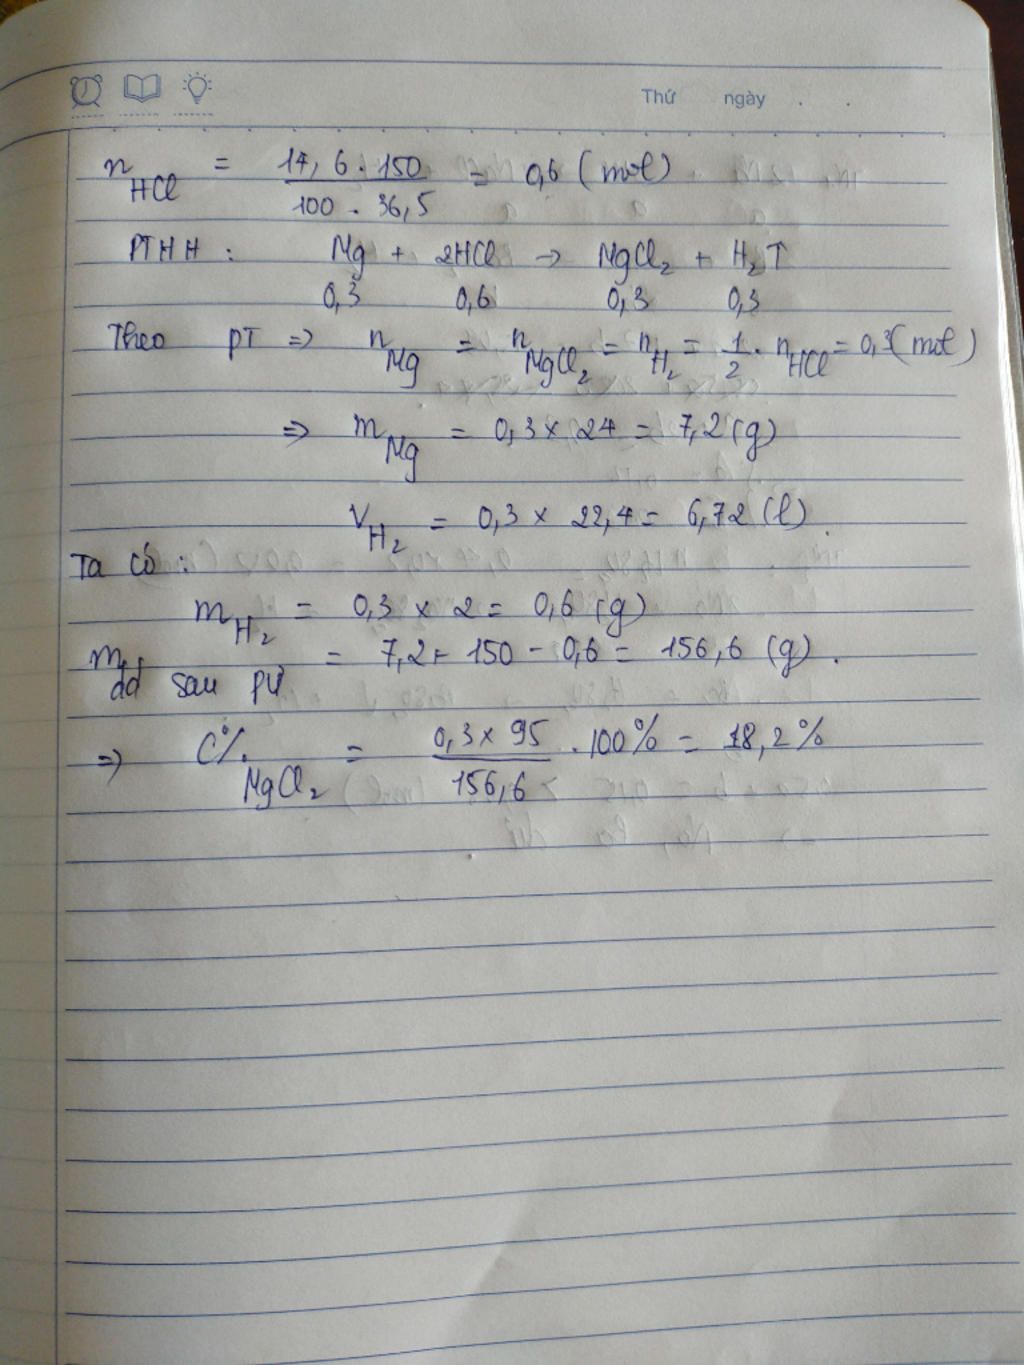 Thứ ngày . .
n HCl = 14,6 . 150 / 100 . 36,5 = 0,6 (mol)
PTHH : Mg + 2HCl → MgCl₂ + H₂↑
0,3 0,6 0,3 0,3
Theo PT => n Mg = n MgCl₂ = n H₂ = 1/2 . n HCl = 0,3 (mol)
=> m Mg = 0,3 x 24 = 7,2 (g)
V H₂ = 0,3 x 22,4 = 6,72 (l).
Ta có :
m H₂ = 0,3 x 2 = 0,6 (g)
m dd sau pứ = 7,2 + 150 - 0,6 = 156,6 (g).
=> C% MgCl₂ = 0,3 x 95 / 156,6 . 100% = 18,2%